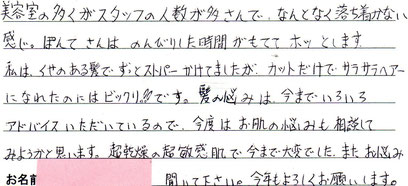 美容室の多くがスタッフの人数が多さんで、なんとなく落ち着かない
感じ。ぽんてさんはのんびりした時間がもててホッとします
私は、くせのある髪でずっとストパーかけてましたが、カットだけでサラサラヘアー
になれたのにはビックリ!!です。髪の悩みは、今までいろいろ
アドバイスいただいているので、今度はお肌の悩みも相談して
みようかと思います。超乾燥の超敏感肌で今まで大変でした。またお悩み
お名前 聞いて下さい。今年もよろしくお願いします。